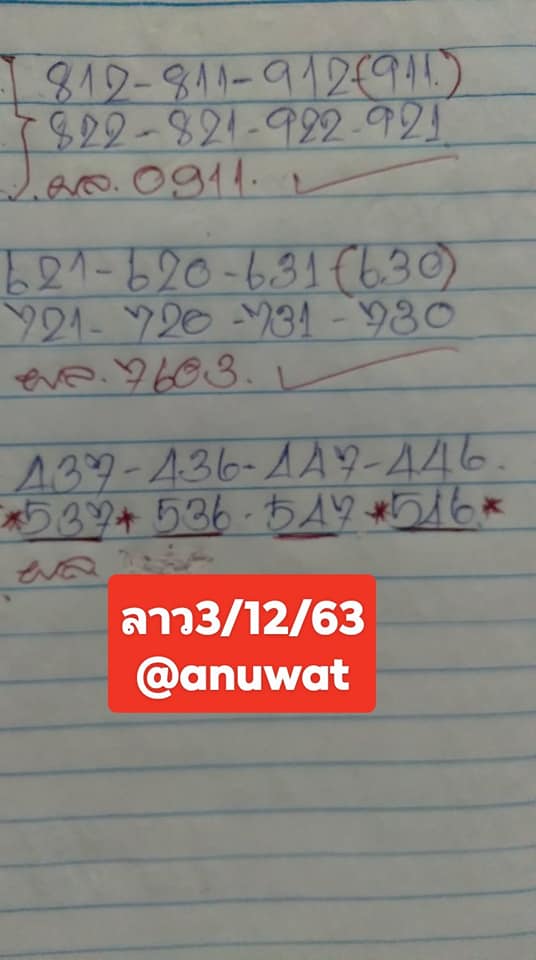 812-811-912-(911.)
822-821-922-921
ผล.0911.
621-620-631(630)
721-720-731-730
ผล.7603.
437-436-447-446.
*537*536-547*546*
ผล
ลาว3/12/63
@anuwat